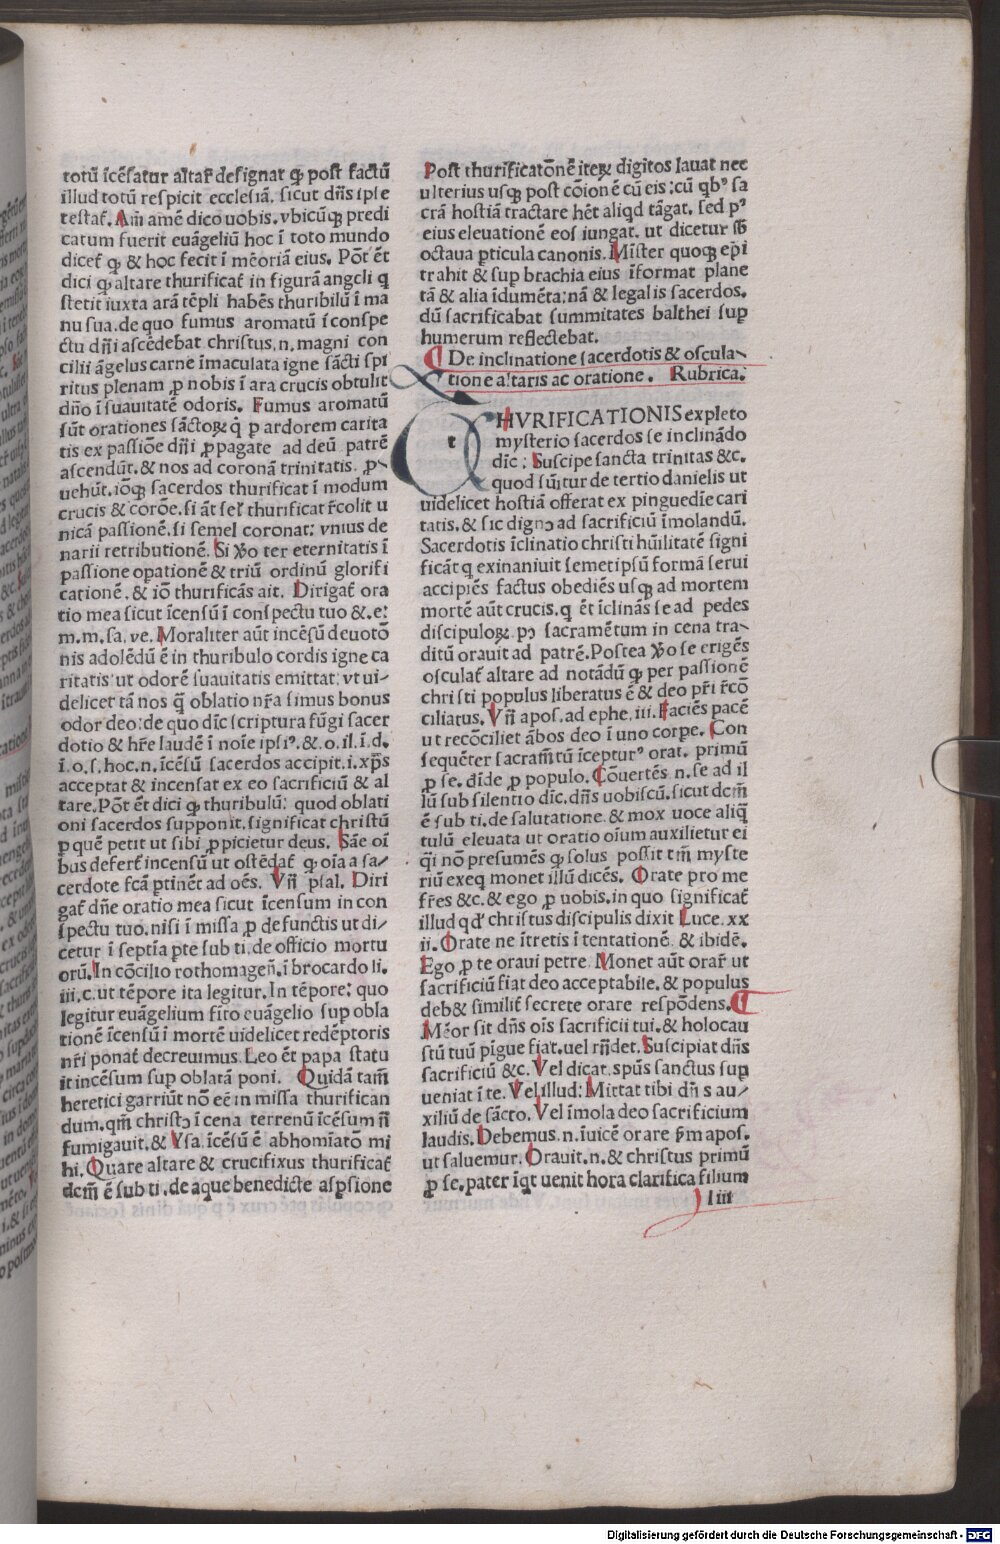 totũ icẽsatur altar̃ designat ꝙ post factũ
illud totũ respicit ecclesiã. sicut dñs ipse
testat̃. Am̃ amẽ dico uobis. vbicũqꝫ predi
catum fuerit euãgeliũ hoc ĩ toto mundo
dicet̃ ꝙ & hoc fecit ĩ mẽoriã eius. Põt ẽt
dici ꝙ altare thurificat̃ in figurã angeli q
stetit iuxta arã tẽpli habẽs thuribilũ ĩ ma
nu sua. de quo fumus aromatũ ĩ conspe
ctu dñi ascẽdebat christus. n. magni con
cilii ãgelus carne ĩmaculata igne sãcti spi
ritus plenam ꝓ nobis ĩ ara crucis obtulit
dño ĩ suauitatẽ odoris. Fumus aromatũ
sũt orationes sãctoꝝ q̃ ꝓ ardorem carita
tis ex passiõe dñi ꝓpagate ad deũ patrẽ
ascendũt. & nos ad coronã trinitatis ꝓ-
uehũt. iõqꝫ sacerdos thurificat ĩ modum
crucis & corõe. si ãt sel̃ thurificat r̃colit u
nicã passionẽ. si semel coronat: vnius de
narii retributionẽ. Si xp̃o ter eternitatis ĩ
passione opationẽ & triũ ordinũ glorifi
cationẽ. & iõ thurificãs ait. Dirigat̃ ora
tio mea sicut ĩcensũ ĩ conspectu tuo & .e:
m. m. sa. ve. Moraliter aũt incẽsũ deuotõ
nis adolẽdũ ẽ in thuribulo cordis igne ca
ritatis ut odorẽ suauitatis emittat: vt ui-
delicet tã nos q̃ oblatio nr̃a simus bonus
odor deo: de quo dĩc scriptura fũgi sacer
dotio & hr̃e laudẽ ĩ noĩe ipsiꝰ. & .o. il. i. d.
i. o. s. hoc. n. ĩcẽsũ sacerdos accipit. i. xp̃s
acceptat & incensat ex eo sacrificiũ & al
tare. Põt ẽt dici ꝙ thuribulũ: quod oblati
oni sacerdos supponit. significat christũ
ꝑ quẽ petit ut sibi ꝓpicietur deus. Sãe oĩ
bus defert̃ incensũ ut ostẽdat̃ ꝙ oĩa a sa-
cerdote fcã ptinẽt ad oẽs. Vñ psal. Diri
gat̃ dñe oratio mea sicut ĩcensum in con
spectu tuo. nisi ĩ missa ꝓ defunctis ut di-
cetur ĩ septĩa pte sub ti. de officio mortu
orũ. In cõcilio rothomageñ. ĩ brocardo li.
iii. c. ut tẽpore ita legitur. In tẽpore: quo
legitur euãgelium fito euãgelio sup obla
tionẽ ĩcensũ ĩ mortẽ uidelicet redẽptoris
nr̃i ponat̃ decreuimus. Leo ẽt papa statu
it incẽsum sup oblatã poni. Quidã tam̃
heretici garriũt nõ eẽ in missa thurifican
dum. qm̃ christꝰ ĩ cena terrenũ ĩcẽsum ñ
fumigauit. & Ysa. ĩcẽsũ ẽ abhomĩatõ mi
hi. Quare altare & crucifixus thurificat̃
dcm̃ ẽ sub ti. de aque benedicte aspsione
Post thurificatõnẽ iteꝝ digitos lauat nec
ulterius usqꝫ post cõionẽ cũ eis: cũ qbꝰ sa
crã hostiã tractare hẽt aliqd tãgat. sed pꝰ
eius eleuationẽ eos iungat. ut dicetur sb̃
octaua pticula canonis. Mĩster quoqꝫ ep̃i
trahit & sup brachia eius ĩformat plane
tã & alia ĩdumẽta: nã & legalis sacerdos.
dũ sacrificabat summitates balthei sup
humerum reflectebat.
¶ De inclinatione sacerdotis & oscula-
tione altaris ac oratione. Rubrica.
THVRIFICATIONIS expleto
mysterio sacerdos se inclinãdo
dĩc: Suscipe sancta trinitas &c.
quod sũitur de tertio danielis ut
uidelicet hostiã offerat ex pinguedĩe cari
tatis. & sic dignꝰ ad sacrificiũ ĩmolandũ.
Sacerdotis ĩclinatio christi hũilitatẽ signi
ficãt q exinaniuit semetipsũ formã serui
accipiẽs factus obediẽs usqꝫ ad mortem
mortẽ aũt crucis. q ẽt ĩclinãs se ad pedes
discipuloꝝ. pꝰ sacramẽtum in cena tra-
ditũ orauit ad patrẽ. Postea xp̃o se erigẽs
osculat̃ altare ad notãdũ ꝙ per passionẽ
christi populus liberatus ẽ & deo pr̃i r̃cõ
ciliatus. Vñ apos. ad ephe. iii. Faciẽs pacẽ
ut recõciliet ãbos deo ĩ uno corpe. Con
sequẽter sacram̃tũ ĩcepturꝰ orat. primũ
ꝓ se. dĩde ꝓ populo. Cõuertẽs .n. se ad il
lũ sub silentio dĩc. dñs uobiscũ. sicut dcm̃
ẽ sub ti. de salutatione. & mox uoce aliq̃
tulũ eleuata ut oratio oĩum auxilietur ei
q̃i nõ presumẽs ꝙ solus possit tm̃ myste
riũ exeq monet illũ dicẽs. Orate pro me
fr̃es &c. & ego ꝓ uobis. in quo significat̃
illud qd̃ christus discipulis dixit Luce. xx
ii. Orate ne ĩtretis ĩ tentationẽ & ibidẽ.
Ego ꝓ te oraui petre. Monet aũt orar̃ ut
sacrificiũ fiat deo acceptabile. & populus
deb& similit̃ secrete orare respõdens. ¶
Mẽor sit dñs oĩs sacrificii tui. & holocau
stũ tuũ pĩgue fiat. uel rñdet. Suscipiat dñs
sacrificiũ &c. Vel dicat. spũs sanctus sup
ueniat ĩ te. Vel illud: Mittat tibi dñs au-
xiliũ de sãcto. Vel ĩmola deo sacrificium
laudis. Debemus. n. ĩuicẽ orare p̃m apos.
ut saluemur. Orauit. n. & christus primũ
ꝓ se. pater ĩqt uenit hora clarifica filium
l iii
Digitalisierung gefördert durch die Deutsche Forschungsgemeinschaft - DFG